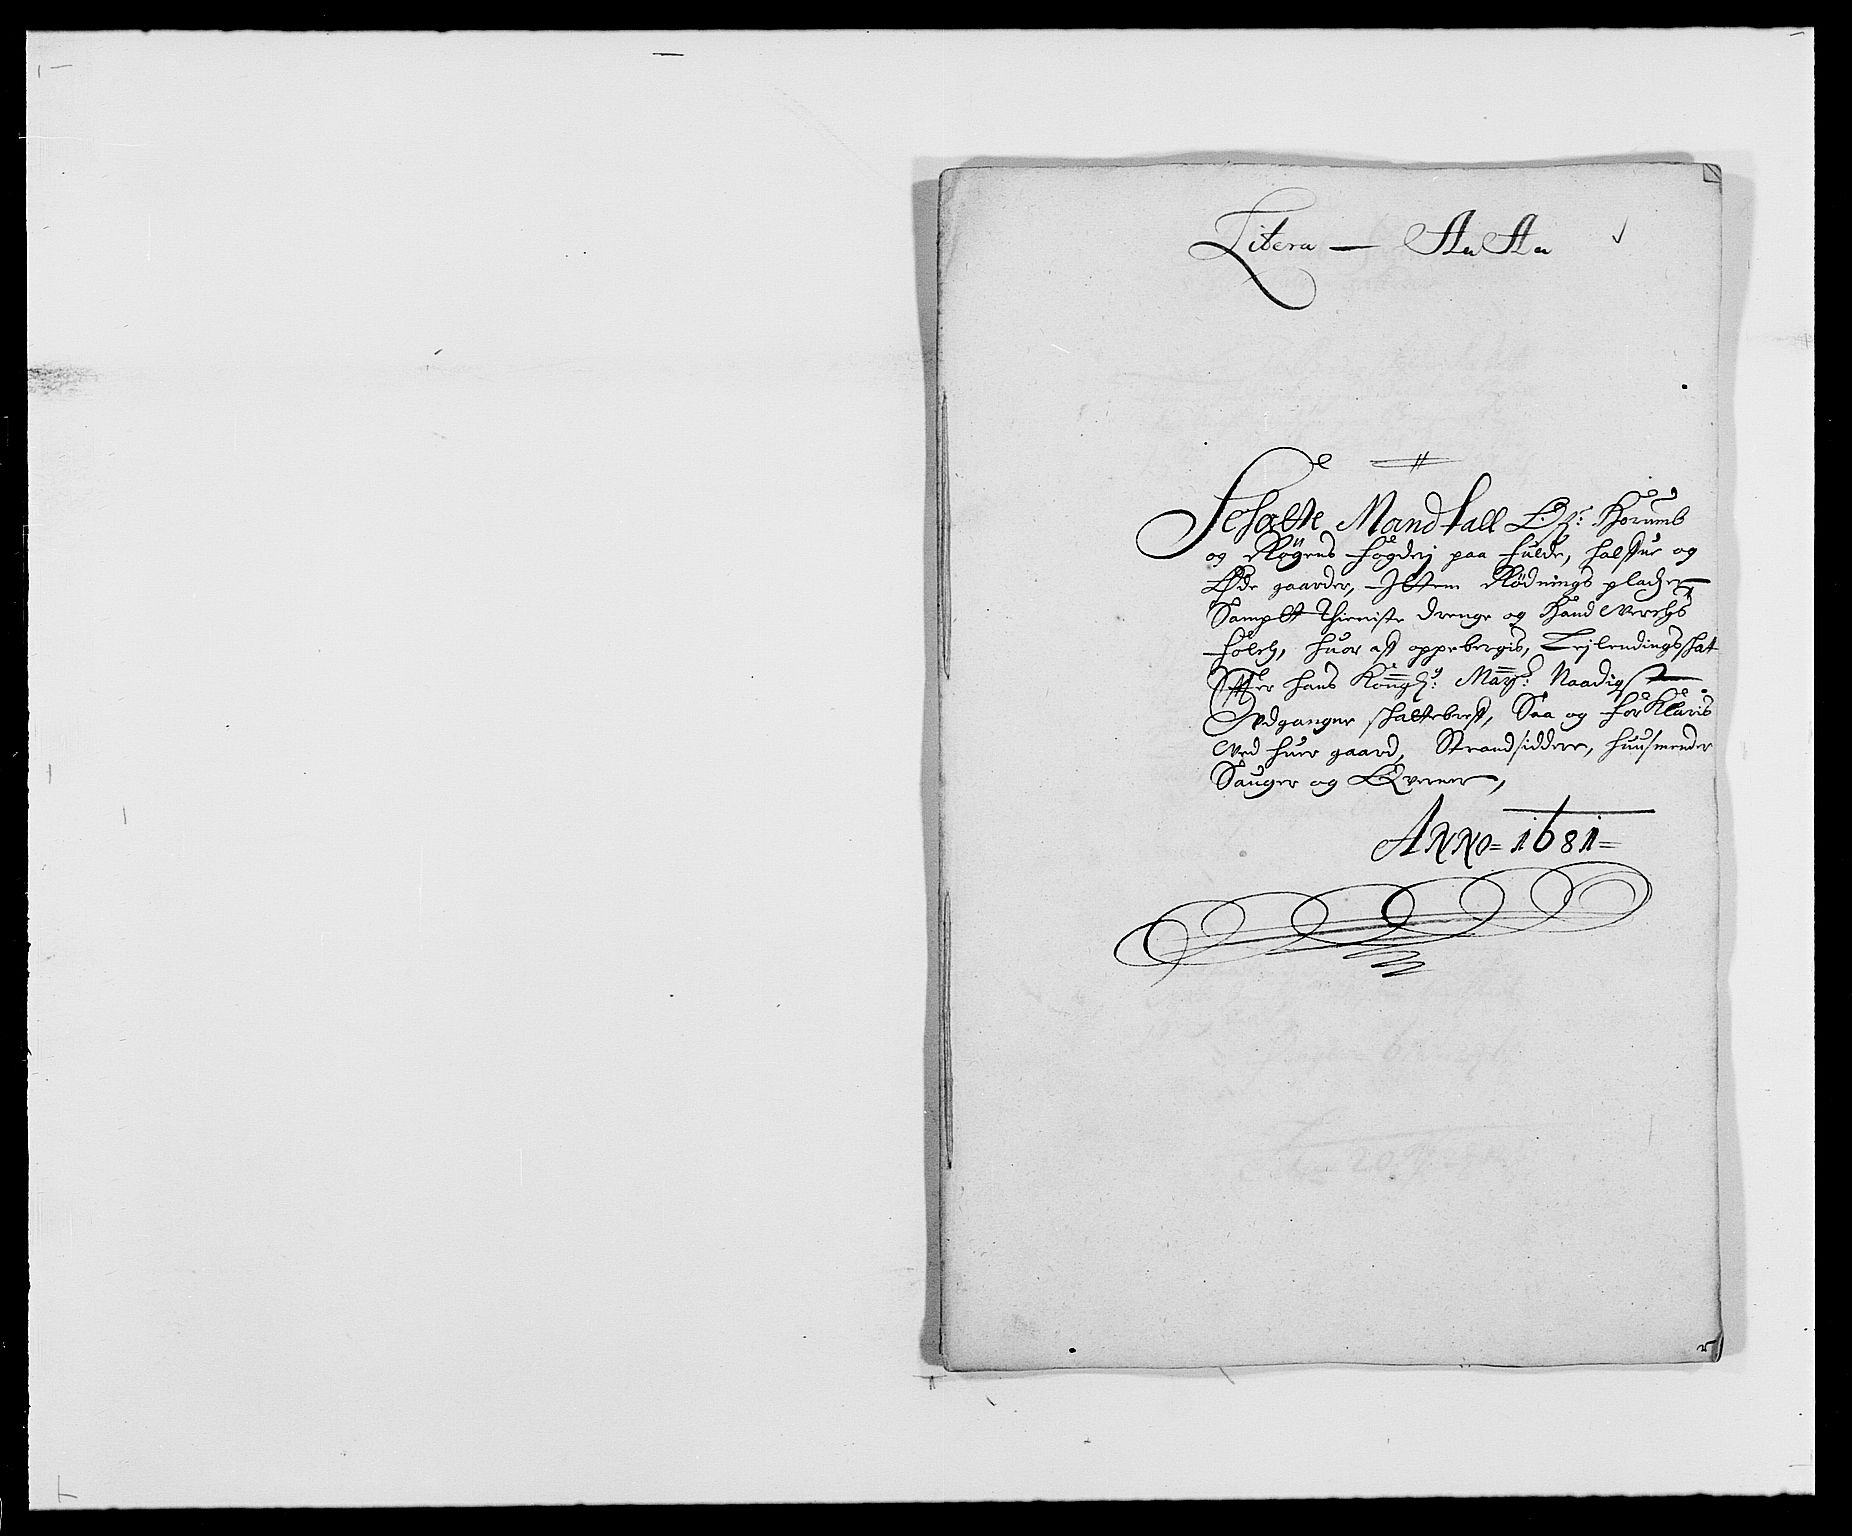 Litera — Aa Aa
Schatte Mandtall Offr: Horumb
og Røgens fogderj paa fulde, halffue og
Øde gaarder, Jttem Rødnings pladtzer
Samptt Thieniste drenge og Handverchs
folch, huor aff oppebergis, Lejlendingsskat
Effter hans Kongl: May: Naadigst
Vdgangne skattebreff, Saa og forklaris
Ved huer gaard, Strandsiddere, huusmender
Sauger og Qverner,
Anno = 1681 =